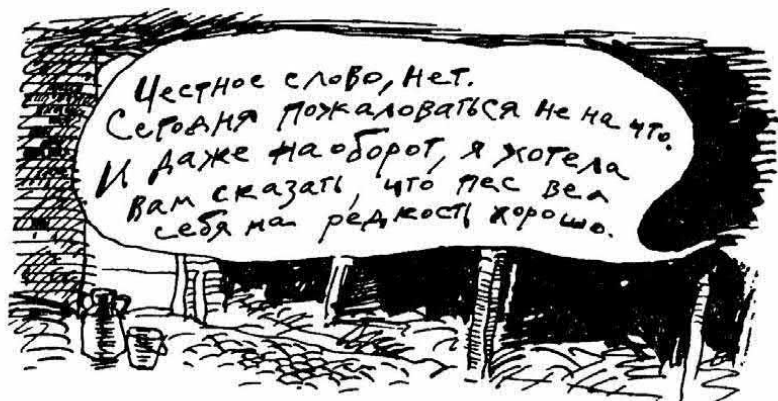 Честное слово, нет.
Сегодня пожаловаться не на что.
И даже наоборот, я хотела
вам сказать, что пес вел
себя на редкость хорошо.